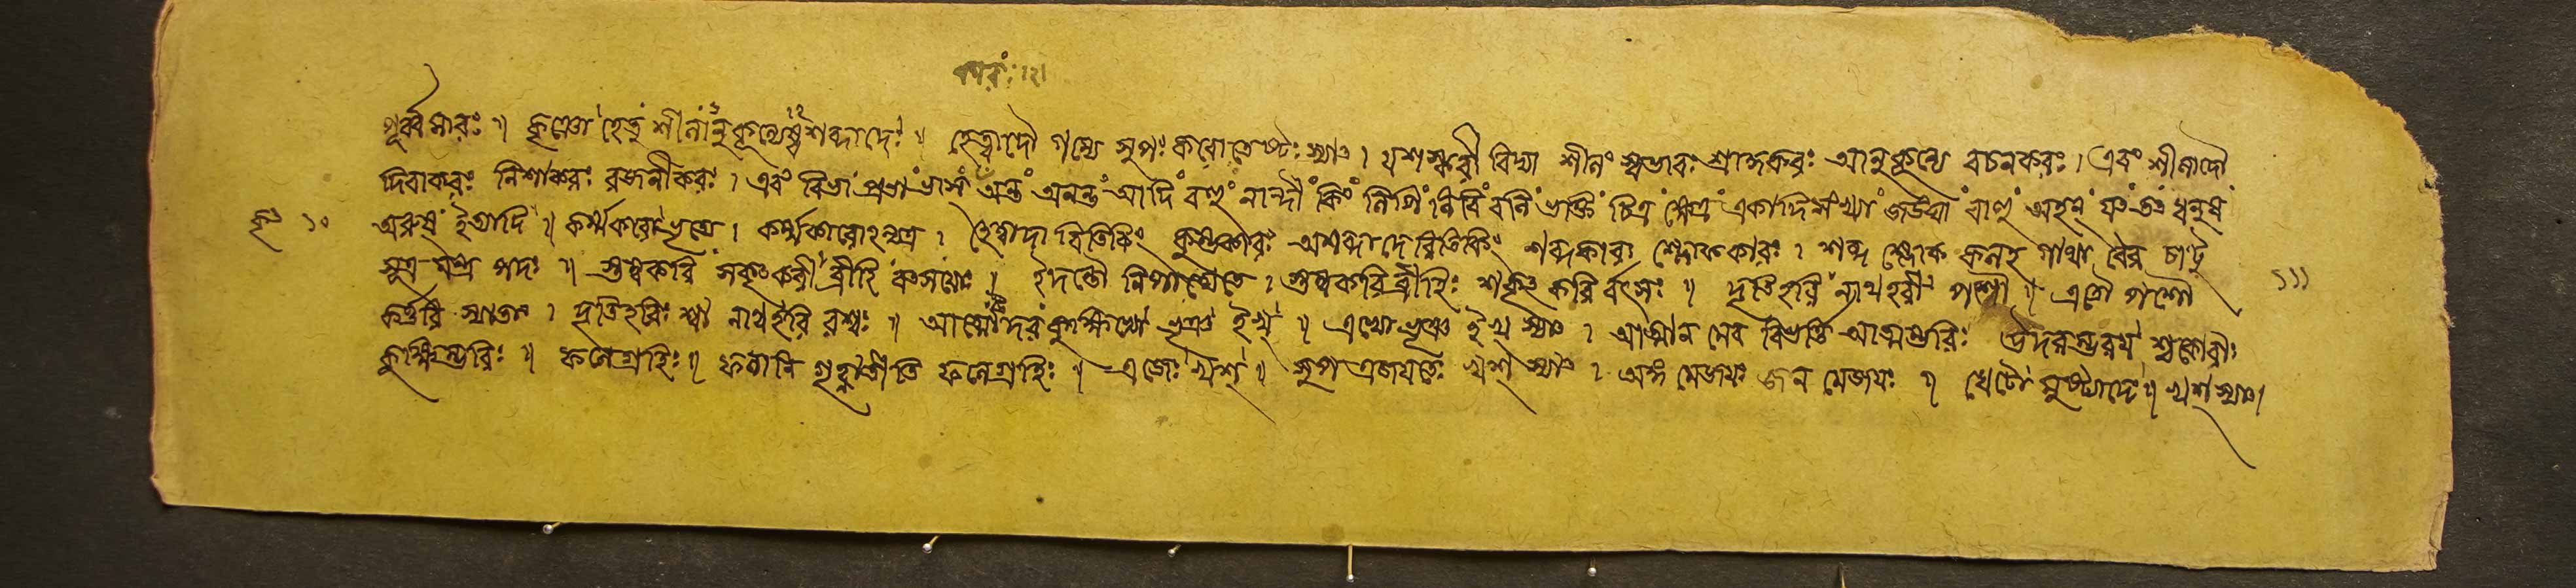 কারঃ ।২।
পূর্ব্বসারঃ ॥ কৃঞো হেতু শীলানুকূল্যেষ্বশব্দাদেঃ ॥ হেত্বাদৌ গম্যে সুপঃ করোতেষ্টঃ স্যাৎ । যশস্করী বিদ্যা শীলং স্বভাবঃ শ্রাদ্ধকরঃ আনুকূল্যে বচনকরঃ । এবং শীলাদৌ
দিবাকরঃ নিশাকরঃ রজনীকরঃ । এবং বিভা প্রভা ভাস্ অন্ত অনন্ত আদি বহু নান্দী কিং লিপি লিবি বলি ভক্তি চিত্র ক্ষেত্র একাদিসংখ্যা জঙ্ঘা বাহু অহন্ যৎ তৎ ধনুষ্
কৃৎ ১০ অরুষ্ ইত্যাদি ॥ কর্ম্মকরো ভৃত্যে । কর্ম্মকারোঽন্যত্র । হেত্বাদাবিতি কিং কুম্ভকারঃ অশব্দাদেরিতি কিং শব্দকারঃ শ্লোককারঃ । শব্দ শ্লোক কলহ গাথা বৈর চাটু
সূত্র মন্ত্র পদ ॥ স্তম্বকরি সকৃৎকরী ব্রীহি বৎসয়োঃ ॥ ইদন্তৌ নিপাত্যেতে । স্তম্বকরি র্ব্রীহিঃ শকৃৎ করি র্বৎসঃ ॥ দৃতিহরি নাথহরী পশৌ ॥ এতৌ পশৌ ১১১
কর্ত্তরি স্যাতাং । দৃতিহরিঃ শ্বা নাথহরি রশ্বঃ ॥ আত্মোদর কুক্ষিভ্যো ভৃঞ ইখ্ ॥ এভ্যো ভৃঞ ইখ্ স্যাৎ । আত্মান মেব বিভর্ত্তি আত্মম্ভরিঃ উদরম্ভরয় শ্চকোরীঃ
কুক্ষিম্ভরিঃ ॥ ফলেগ্রহিঃ ॥ ফলানি গৃহ্ণাতীতি ফলেগ্রহিঃ ॥ এজেঃ খশ্ ॥ সুপ এজয়তেঃ খশ্ স্যাৎ । অঙ্গ মেজয়ঃ জন মেজয়ঃ ॥ ধেটো মুষ্ট্যাদেঃ ॥ খশ্ স্যাৎ ।